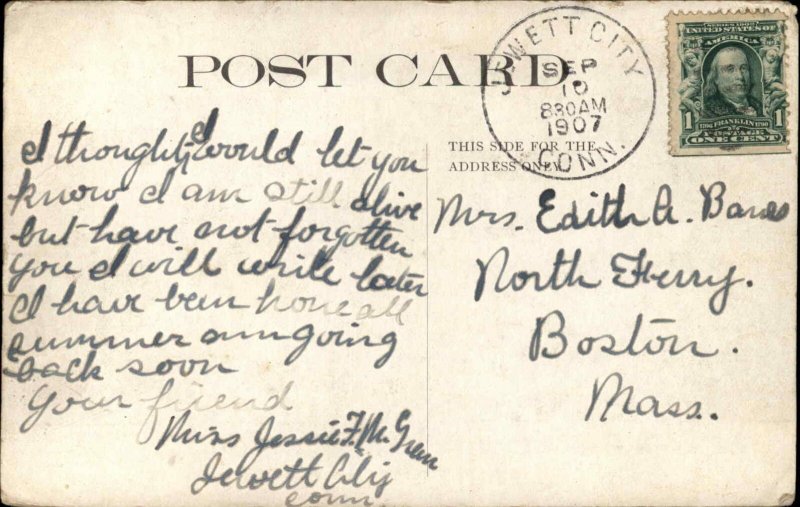 POST CARD
JEWETT CITY
SEP
10
830AM
1907
CONN.
SERIES 1902
UNITED STATES OF
AMERICA
1706 FRANKLIN 1790
1 1
POSTAGE
ONE CENT
THIS SIDE FOR THE
ADDRESS ONLY
I thought I would let you
know I am still alive
but have not forgotten
you I will write later
I have been home all
summer am going
back soon
Your friend
Miss Jessie F. Mc
Jewett City
Conn.
Mrs. Edith A.
North Ferry.
Boston.
Mass.